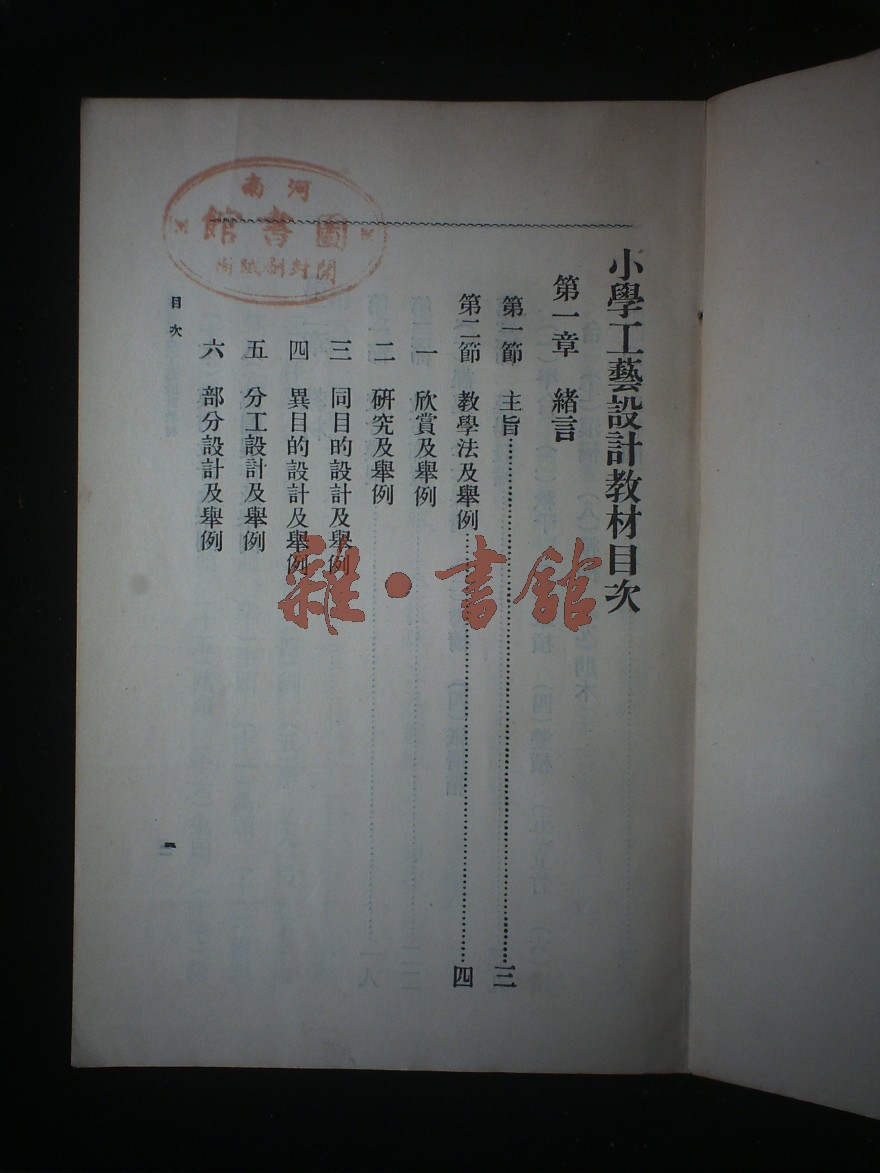 小學工藝設計教材目次
第一章 緒言
第一節 主旨……三
第二節 教學法及舉例……四
一 欣賞及舉例
二 研究及舉例
三 同目的設計及舉例
四 異目的設計及舉例
五 分工設計及舉例
六 部分設計及舉例
目次
一
河南
圖書館
雜·書館